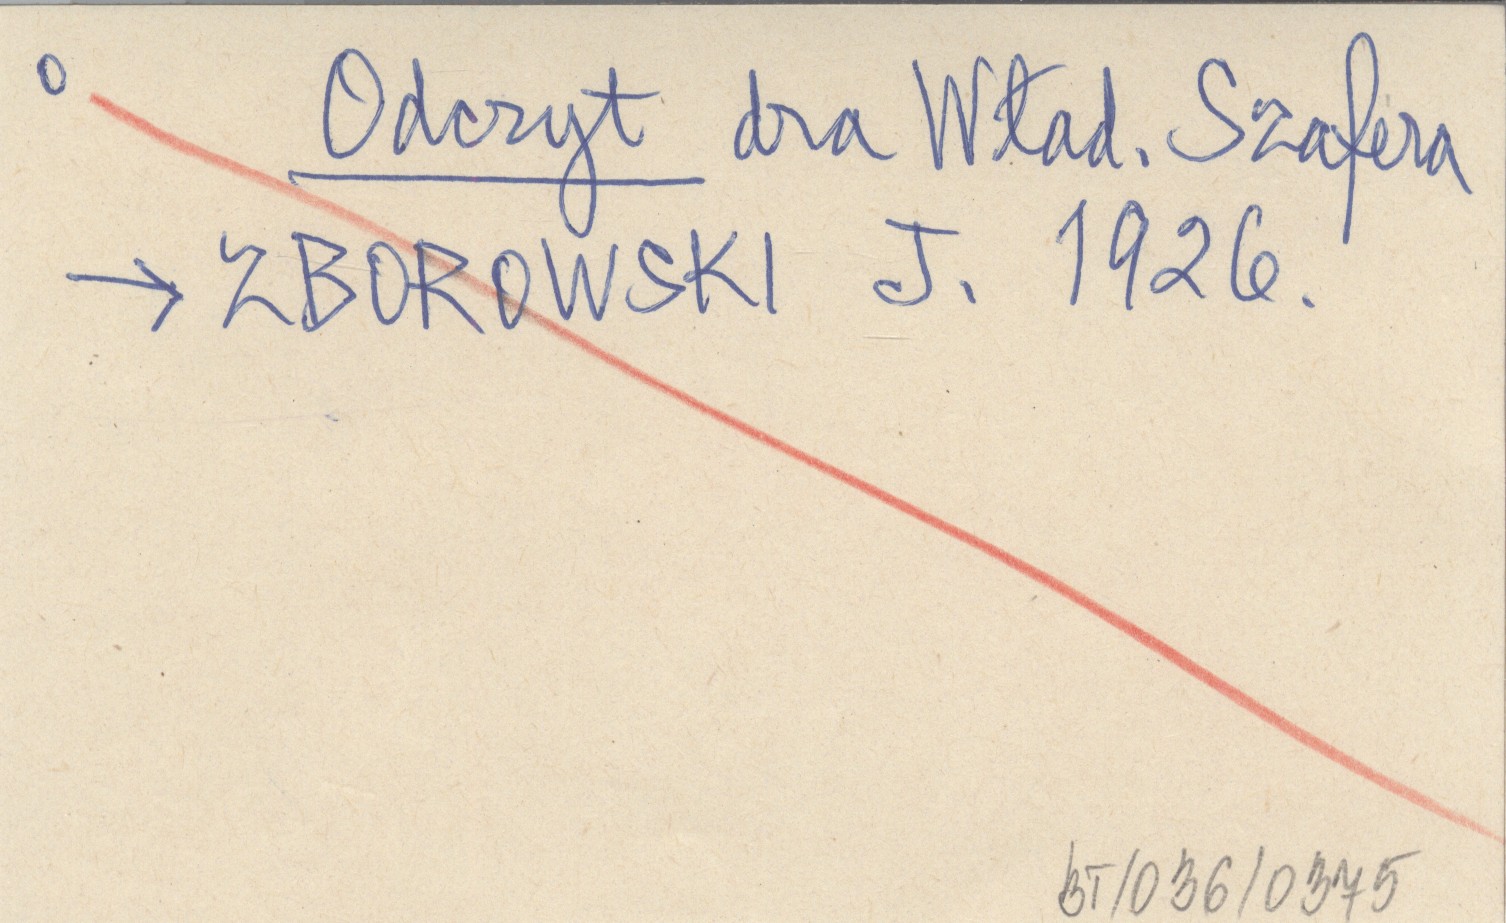 o Odczyt dra Wład. Szafera
→ ZBOROWSKI J. 1926.
BT/036/0375